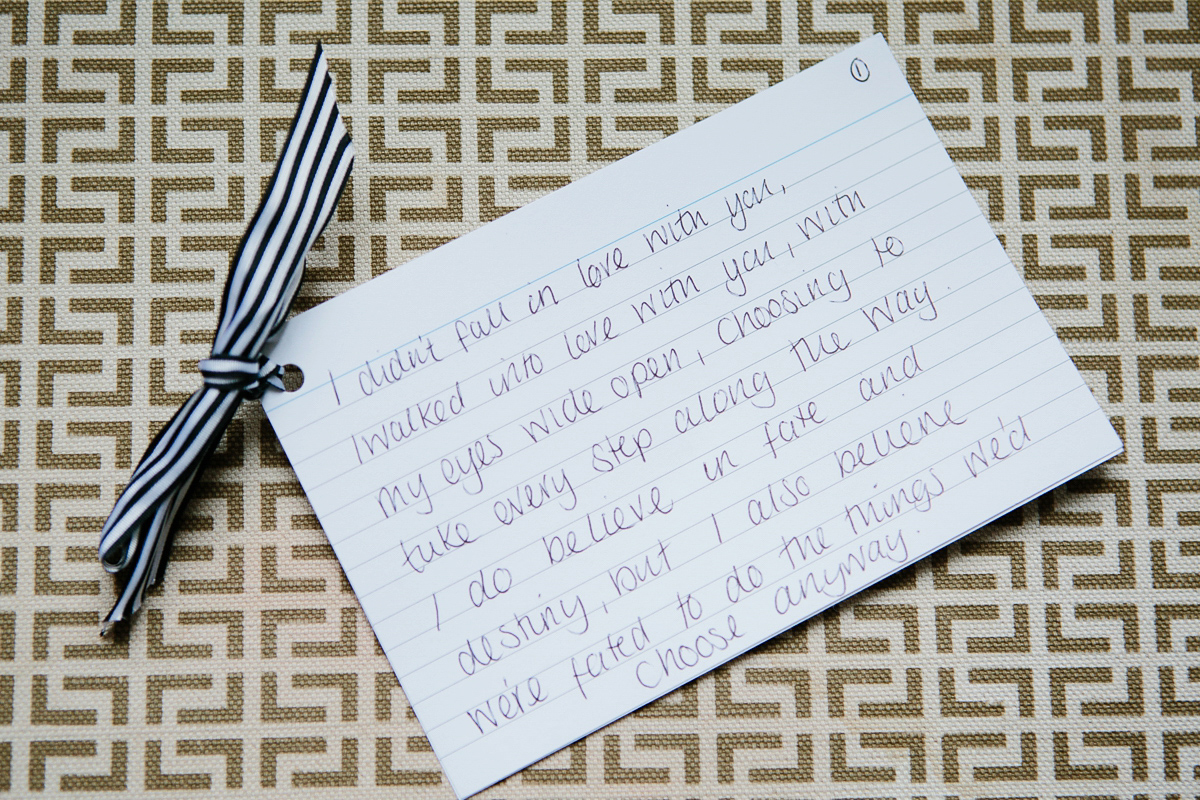 ①
I didn't fall in love with you,
I walked into love with you, with
my eyes wide open, choosing to
take every step along the way.
I do believe in fate and
destiny, but I also believe
we're fated to do the things we'd
choose anyway.